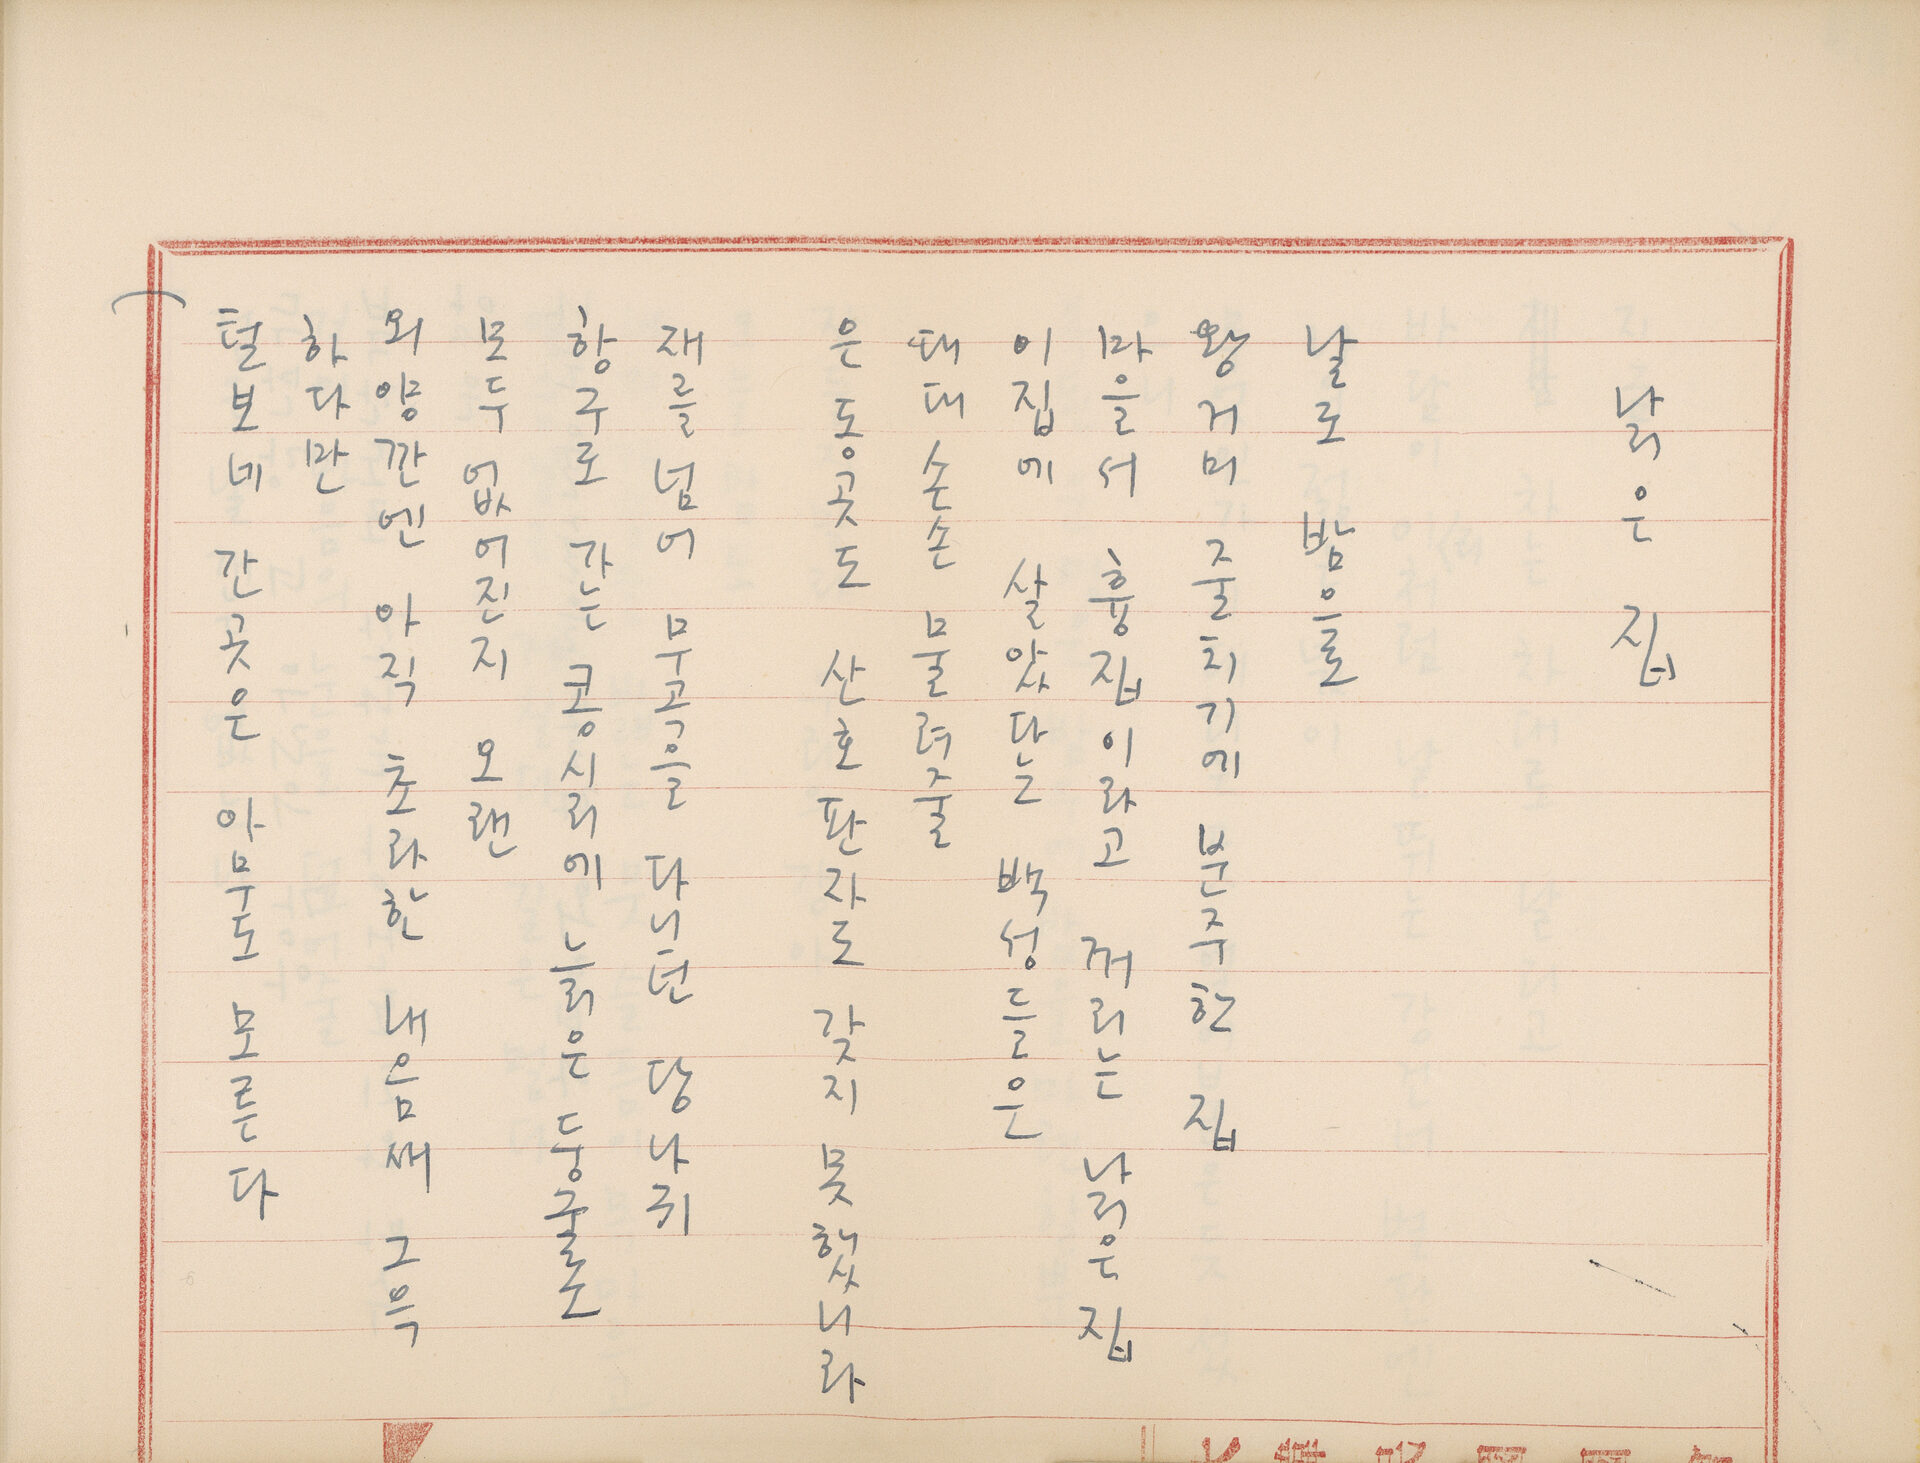 낡은 집
날로 밤으로
왕거미 줄치기에 분주한 집
마을서 흉집이라고 꺼리는 낡은 집
이집에 살았다는 백성들은
대대손손 물려줄
은동곳도 산호판자도 갖지 못했니라
재를넘어 무곡을 다니던 당나귀
항구로 가는 콩시리에 늙은 둥굴소
모두 없어진지 오랜
외양깐엔 아직 초라한 내음새 그윽
하다만
털보네 간곳은 아무도 모른다